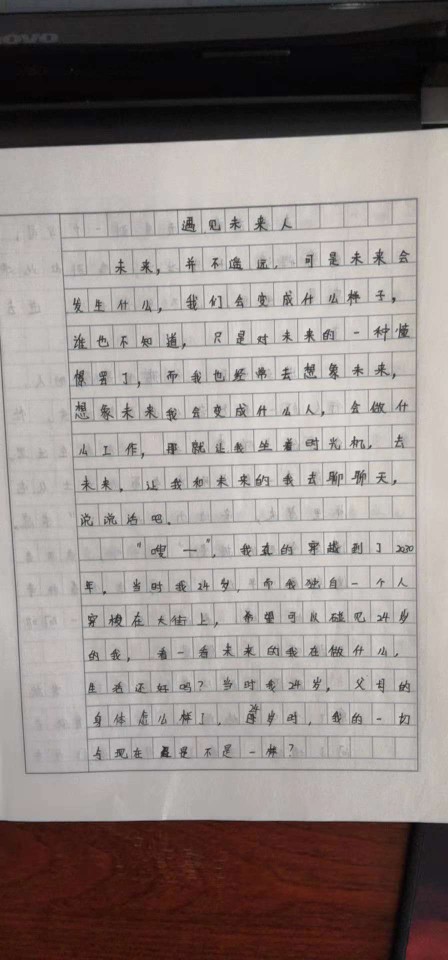 遇见未来人
未来，并不遥远，可是未来会
发生什么，我们会变成什么样子，
谁也不知道，只是对未来的一种憧
憬罢了，而我也经常去想象未来，
想象未来我会变成什么人，会做什
么工作，那就让我坐着时光机，去
未来，让我和未来的我去聊聊天，
说说话吧。
"嗖一"，我真的穿越到了2030
年，当时我24岁，而我独自一个人
穿梭在大街上，希望可以碰见24岁
的我，看一看未来的我在做什么，
生活还好吗？当时我24岁，父母的
身体怎么样了，岁时，我的一切
与现在是不是一样？